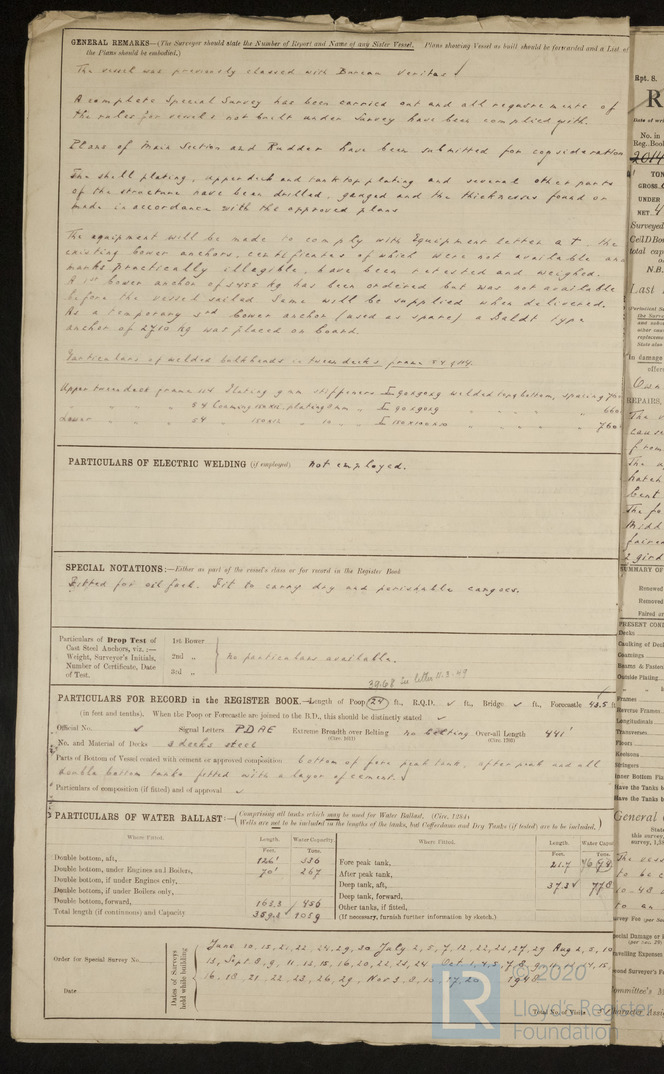 GENERAL REMARKS—(The Surveyor should state the Number of Report and Name of any Sister Vessel. Plans showing Vessel as built should be forwarded and a List of
the Plans should be embodied.)
The vessel was previously classed with Bureau Veritas
A complete Special Survey has been carried out and all requirements of
the rules for vessels not built under survey have been complied with.
Plans of Main Section and Rudder have been submitted for consideration
The shell plating, upper deck and tank top plating and several other parts
of the structure have been drilled, gauged and the thicknesses found or
made in accordance with the approved plans
The equipment will be made to comply with Equipment letter a †. the
existing bower anchors, certificates of which were not available and
marks practically illegible, have been retested and weighed.
A 1st bower anchor of 3455 kg has been ordered but was not available
before the vessel sailed same will be supplied when delivered.
As a temporary 3rd bower anchor (used as spare) a Baldt type
anchor of 2710 kg was placed on board.
Particulars of welded bulkheads in tween decks, frame 54 & 114.
Upper tweendeck frame 114 Plating 9mm stiffeners 90x90x9 welded top & bottom, spacing 760
" " " 54 Coaming plating 8mm " 90x90x9 " " " " 660
Lower " 54 " " " " " " " 760
PARTICULARS OF ELECTRIC WELDING (if employed) Not employed.
SPECIAL NOTATIONS:—Either as part of the vessel's class or for record in the Register Book
Fitted for oil fuel. Fit to carry dry and perishable cargoes.
Particulars of Drop Test of
Cast Steel Anchors, viz.:—
Weight, Surveyor's Initials,
Number of Certificate, Date
of Test.
1st Bower
2nd „
3rd „
No particulars available.
39.68 see letter 11.3.49
PARTICULARS FOR RECORD in the REGISTER BOOK.—Length of Poop 24 ft., R.Q.D. ft., Bridge ft., Forecastle 43.5 ft
(in feet and tenths). When the Poop or Forecastle are joined to the B.D., this should be distinctly stated
Official No. Signal Letters PDAE Extreme Breadth over Belting no belting Over-all Length 441'
No. and Material of Decks 3 decks steel
Parts of Bottom of Vessel coated with cement or approved composition bottom of fore peak tank, after peak and all
double bottom tanks fitted with a layer of cement.
Particulars of composition (if fitted) and of approval
PARTICULARS OF WATER BALLAST:—(Comprising all tanks which may be used for Water Ballast. (Circ. 1284)
Wells are not to be included in the lengths of the tanks, but Cofferdams and Dry Tanks (if tested) are to be included.)
Where Fitted. Length. Water Capacity. Where Fitted. Length. Water Capacity.
Feet. Tons. Feet. Tons.
Double bottom, aft, 126' 336 Fore peak tank, 21.7
Double bottom, under Engines and Boilers, 70' 267 After peak tank,
Double bottom, if under Engines only, Deep tank, aft, 37.3 778
Double bottom, if under Boilers only, Deep tank, forward,
Double bottom, forward, 163.3 456 Other tanks, if fitted,
Total length (if continuous) and Capacity 359.3 1059 (If necessary, furnish further information by sketch.)
Order for Special Survey No.
Date
Dates of Surveys
held while building
June 10, 15, 21, 22, 24, 29, 30 July 2, 5, 7, 12, 22, 22, 27, 29 Aug 2, 5, 10
13, Sept 8, 9, 11, 13, 15, 16, 20, 22, 23, 24 Oct 1, 4, 5, 7, 8 14, 15
16, 18, 21, 22, 23, 26, 29, Nov 3, 8, 10, 17, 20 1948
Total No. of Visits
© 2020
LR
Lloyd's Register
Foundation
Rpt. 8.
No. in
Reg. Book
2014
TON
GROSS
UNDER
NET
Surveyed
N.B.
Last
In damage
REPAIRS,
SUMMARY OF
Renewed
Removed
PRESENT CON
Decks
Caulking of Deck
Coamings
Beams & Fasten
Outside Plating
Frames
Reverse Frames
Longitudinals
Transverses
Floors
Keelsons
Stringers
Inner Bottom Pla
Have the Tanks
Have the Tanks
General
this survey,